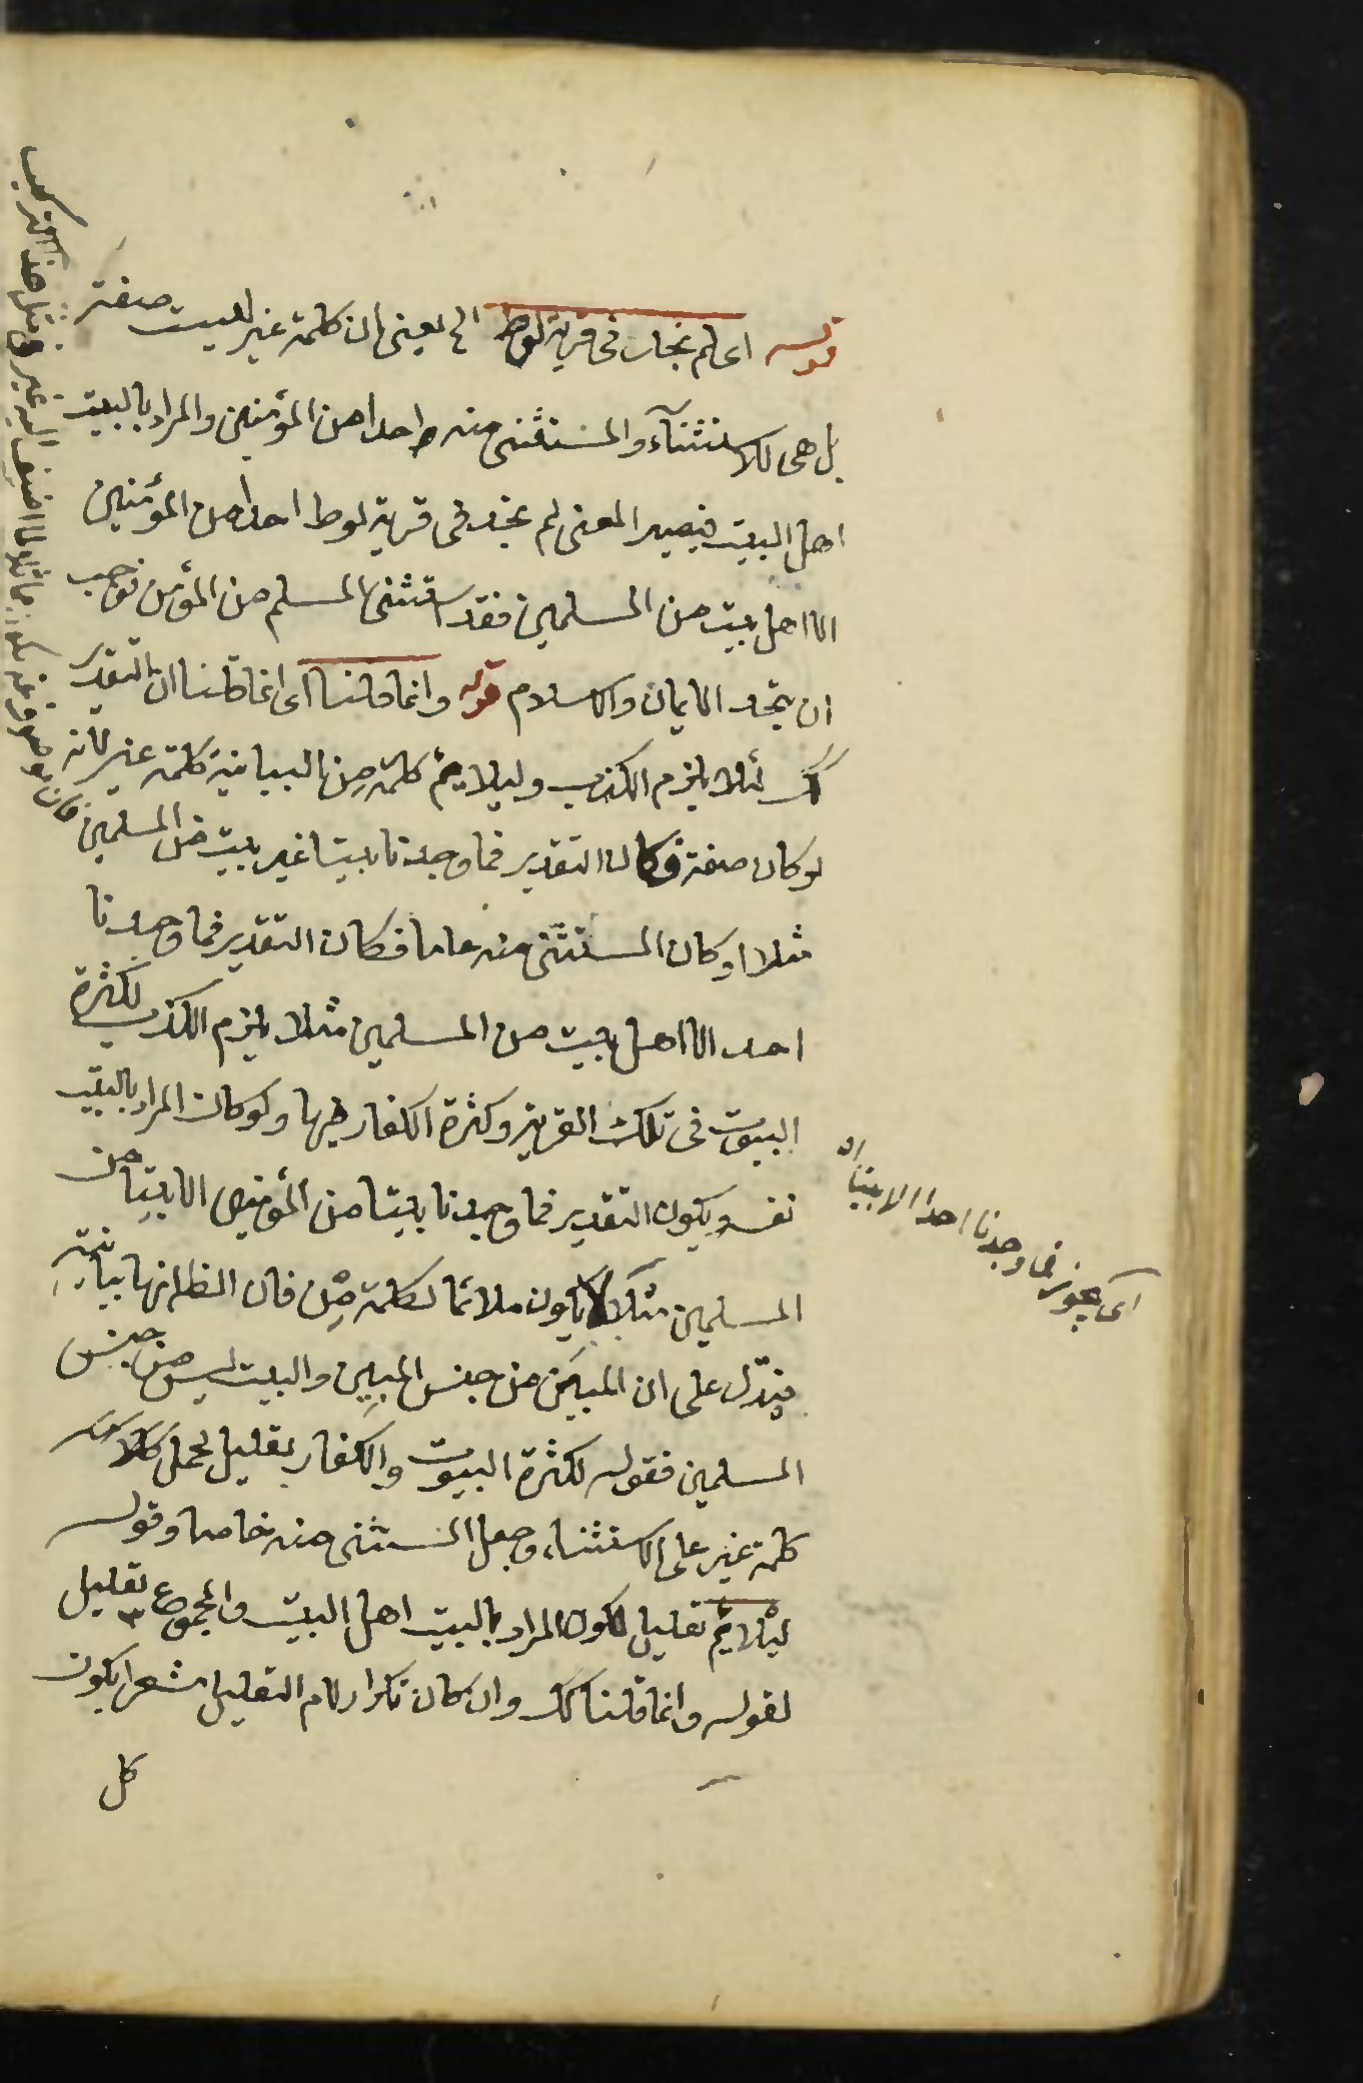 قوله اى لم نجد فى قرية لوط الخ يعنى ان كلمة غير ليست صفة
بل هى للاستثنآء والمستثنى منه واحدا من المؤمنين والمراد بالبيت
اهل البيت فيصير المعنى لم نجد فى قرية لوط احدا من المؤمنين
الا اهل بيت من المسلمين فقد استثنى المسلم من المؤمن فوجب
ان يتحد الايمان والاسلام قوله وانما قلنا اى انما قلنا ان التقدير
كك لئلا يلزم الكذب وليلايم كلمة من البيانية كلمة غير لانه
لو كان صفة فكان التقدير فما وجدنا بيتا غير بيت من المسلمين
مثلا او كان المستثنى منه عاما فكان التقدير فما وجدنا
احد الا اهل بيت من المسلمين مثلا يلزم الكذب لكثرة
البيوت فى تلك القرية وكثرة الكفار فيها ولو كان المراد بالبيت
نفسه ويكون التقدير فما وجدنا بيتا من المؤمنين الا بيتا من
المسلمين مثلا لا يكون ملائما لكلمة مِنْ فان الظ انها بيانية
فيدل على ان المبيَن من جنس المبيِن والبيت ليس من جنس
المسلمين فقوله لكثرة البيوت والكفار تعليل لحمل
كلمة غير على الاستثناء وجعل المستثنى منه خاصا وقوله
ليلايم تعليل لكون المراد بالبيت اهل البيت والمجموع تعليل
لقوله وانما قلنا كك وان كان تكرار لام التعليل مشعرا بكون
كل
اى يجوز فما وجدنا احدا الا بيتا